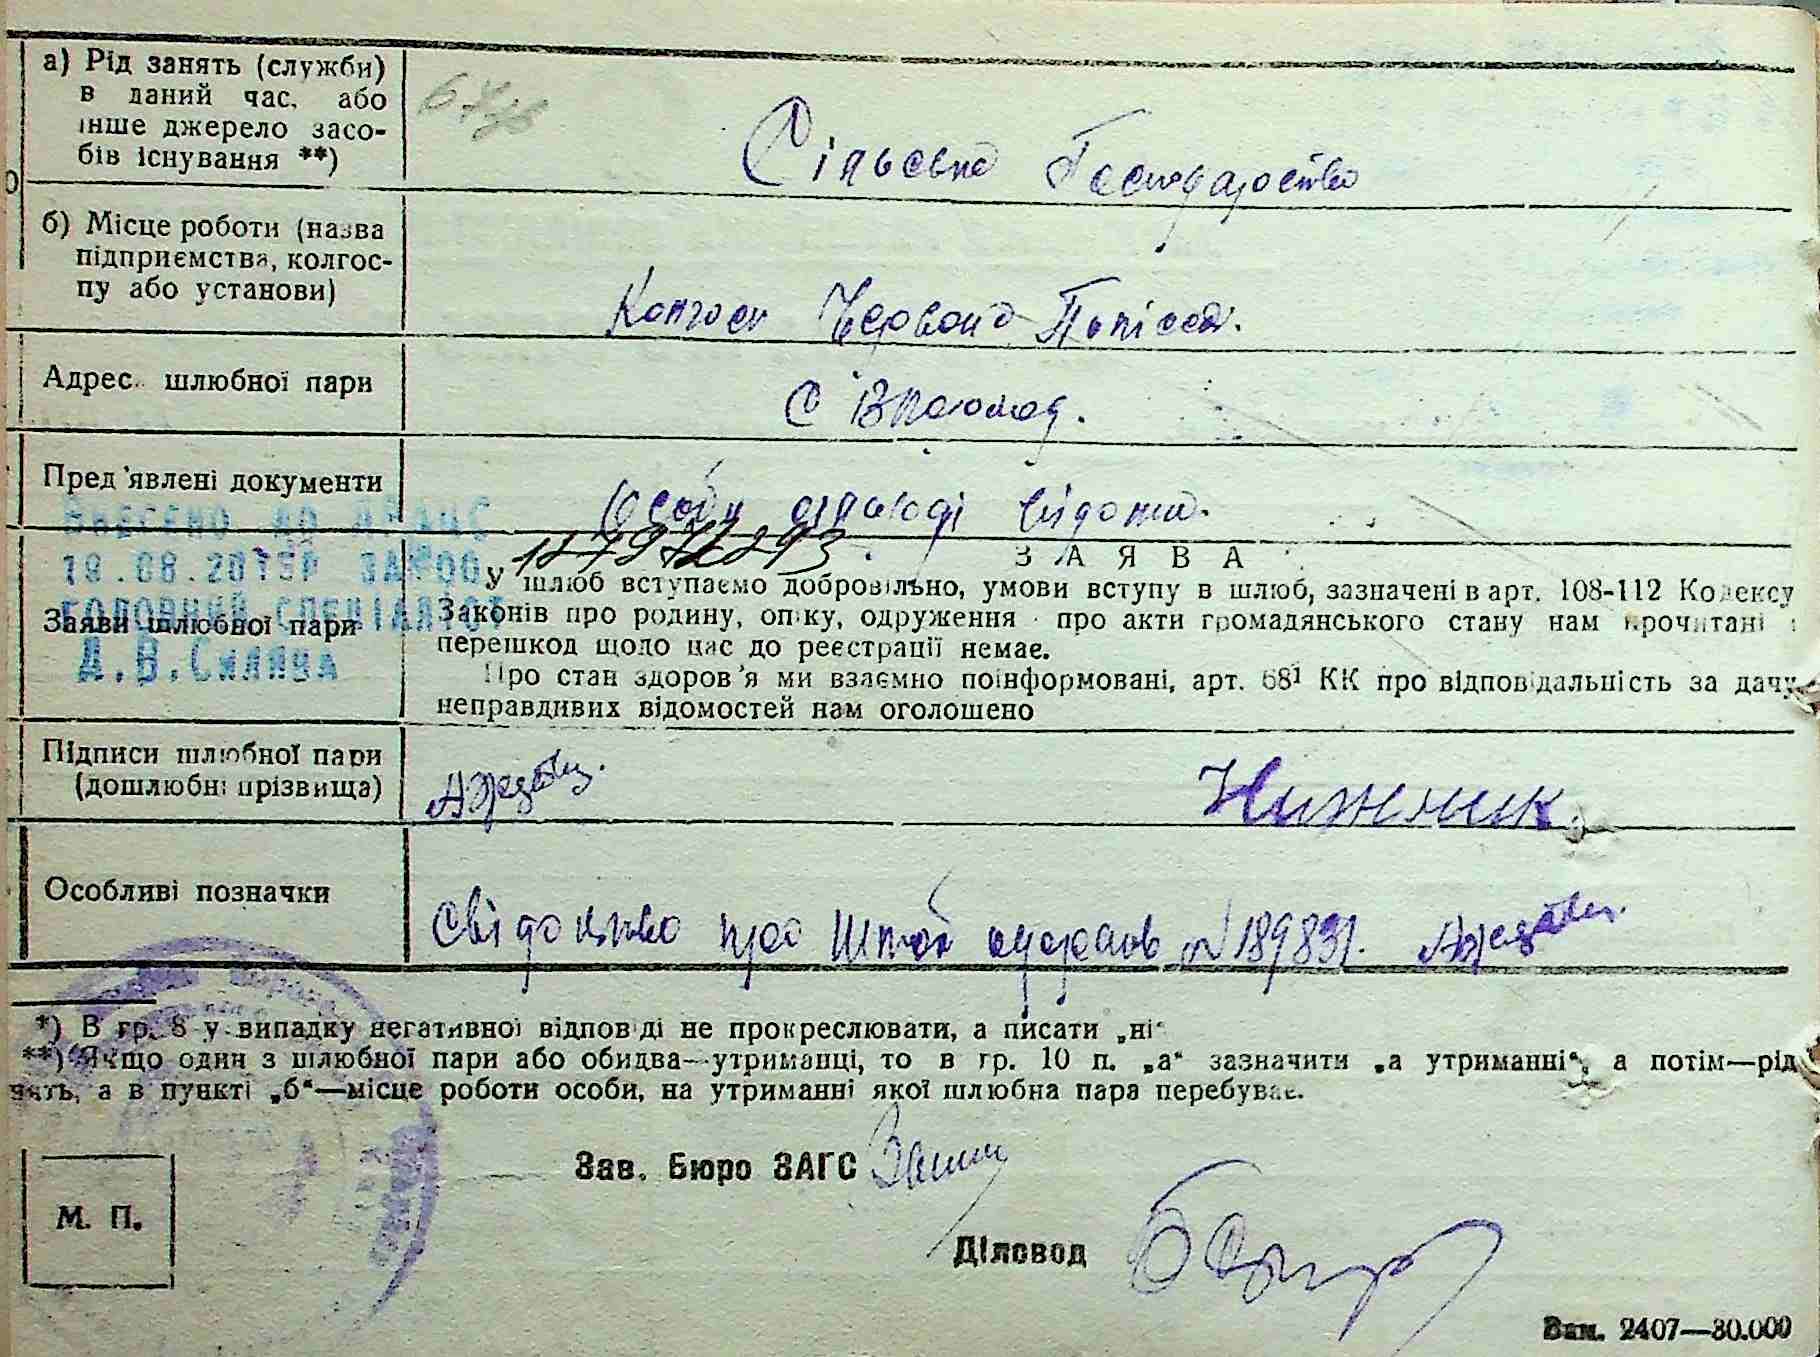 а) Рід занять (служби)
в даний час, або
інше джерело засо-
бів існування **)
Сільське Господарство
б) Місце роботи (назва
підприємства, колгос-
пу або установи)
Колгосп Червоне Полісся.
Адрес шлюбної пари
С
Пред'явлені документи
Особи сільраді відомі.
ВНЕСЕНО ДО ДРАЦС
19.08.201
ГОЛОВНИЙ СПЕЦІАЛІСТ
Д.В.
Заяви шлюбної пари
ЗАЯВА
У шлюб вступаємо добровільно, умови вступу в шлюб, зазначені в арт. 108-112 Кодексу
Законів про родину, опіку, одруження про акти громадянського стану нам прочитані і
перешкод щодо нас до реєстрації немає.
Про стан здоров'я ми взаємно поінформовані, арт. 68¹ КК про відповідальність за дачу
неправдивих відомостей нам оголошено
Підписи шлюбної пари
(дошлюбні прізвища)
Нижник.
Особливі позначки
Свідоцтво про Шлюб одержав № 189831.
*) В гр. 8 у випадку негативної відповіді не прокреслювати, а писати „ні“
**) Якщо один з шлюбної пари або обидва—утриманці, то в гр. 10 п. „а“ зазначити „а утриманні“, а потім—рід
нять, а в пункті „б“—місце роботи особи, на утриманні якої шлюбна пара перебуває.
Зав. Бюро ЗАГС
М. П.
Діловод
Зам. 2407—30.000